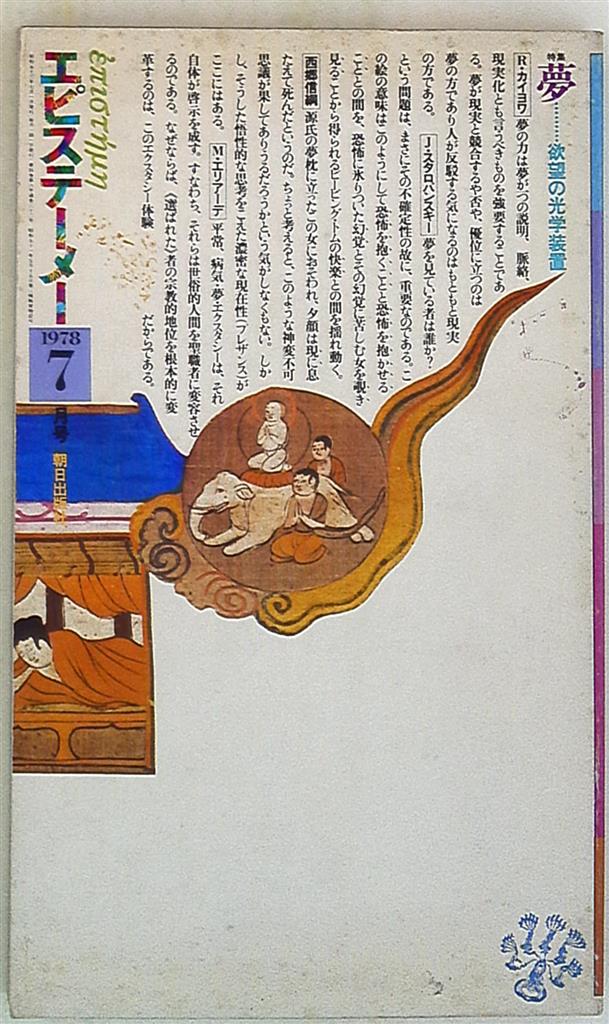 特集
夢………欲望の光学装置
R・カイヨワ 夢の力は夢が一つの説明、脈絡、
現実化とも言うべきものを強要することであ
る。夢が現実と競合するや否や、優位に立つのは
夢の方であり人が反駁する気になるのはもともと現実
の方である。 J・スタロバンスキー 夢を見ている者は誰か?
という問題は、まさにその不確定性の故に、重要なのである。こ
の絵の意味はこのようにして恐怖を抱くことと恐怖を抱かせる
こととの間を、恐怖に氷りついた幻覚とその幻覚に苦しむ女を覗き
見ることから得られるピーピング・トムの快楽との間を揺れ動く。
西郷信綱 源氏の夢枕に立ったこの女におそわれ、夕顔は現に息
たえて死んだというのだ。ちょっと考えると、このような神変不可
思議が果してありうるだろうかという気がしなくもない。しか
し、そうした悟性的な思考をこえた濃密な現在性(プレザンス)が
ここにはある。 M・エリアーデ 平常、病気・夢・エクスタシーは、それ
自体が啓示を成す。すなわち、それらは世俗的人間を聖職者に変容させ
るのである。なぜならば、〈選ばれた〉者の宗教的地位を根本的に変
革するのは、このエクスタシー体験
だからである。
ἐπιστήμη
エピステーメー
1978
7
月号
朝日出版社